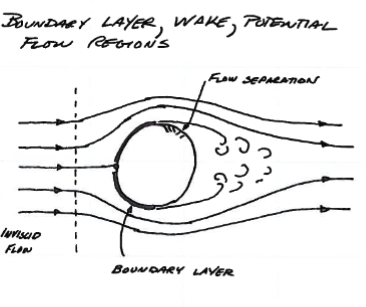 BOUNDARY LAYER, WAKE, POTENTIAL
FLOW REGIONS
FLOW SEPARATION
INVISCID
FLOW
BOUNDARY LAYER